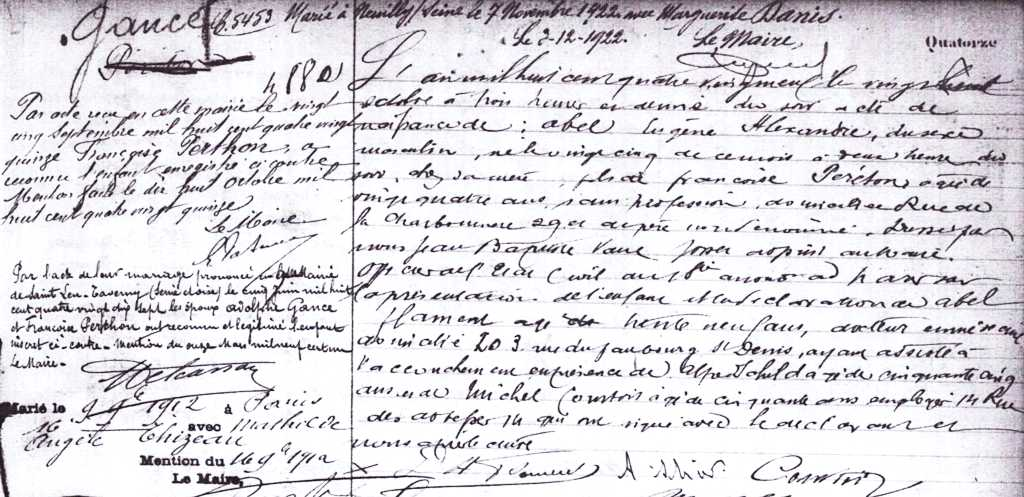 Gance
B.5453 Marié à Neuilly/Seine le 7 Novembre 1922 avec Marguerite Danis.
Le 2-12-1922. Le Maire,
Quatorze
Par acte reçu en cette mairie le vingt
cinq septembre mil huit cent quatre vingt
quinze Françoise Perthon, a
reconnu l'enfant enregistré ci contre
Mention faite le dix huit octobre mil
huit cent quatre vingt quinze
Le Maire
Par l'acte de leur mariage prononcé à la Mairie
de Saint Leu-Taverny (Seine et Oise) le cinq juin mil huit
cent quatre vingt dix sept les époux Adolphe Gance
et Françoise Perthon ont reconnu et légitimé l'enfant
inscrit ci-contre. Mention du onze Mars mil neuf cent un
Le Maire.
Marié le 9 9bre 1912 à Paris
avec Mathilde
Angèle Thizeau
Mention du 16 9bre 1912
Le Maire,
L'an mil huit cent quatre vingt neuf le vingt
octobre à trois heures et demie du soir acte de
naissance de : abel Eugène Alexandre, du sexe
masculin, né le vingt cinq de ce mois à deux heures du
soir, chez sa mère, fils de françoise Perthon agée de
vingt quatre ans, sans profession, domiciliée Rue de
la Charbonnière et de père non dénommé. Dressé par
nous Jean Baptiste adjoint au maire.
officier de l'Etat Civil du arrond sur
la présentation de l'enfant et la déclaration de abel
flament agé de trente neuf ans, docteur en médecine
domicilié 203 rue du faubourg St Denis, ayant assisté à
l'accouchement en présence de agé de cinquante cinq
ans et de Michel Courtois agé de cinquante ans employé 14 Rue
des 14 qui ont signé avec le déclarant et
nous après lecture